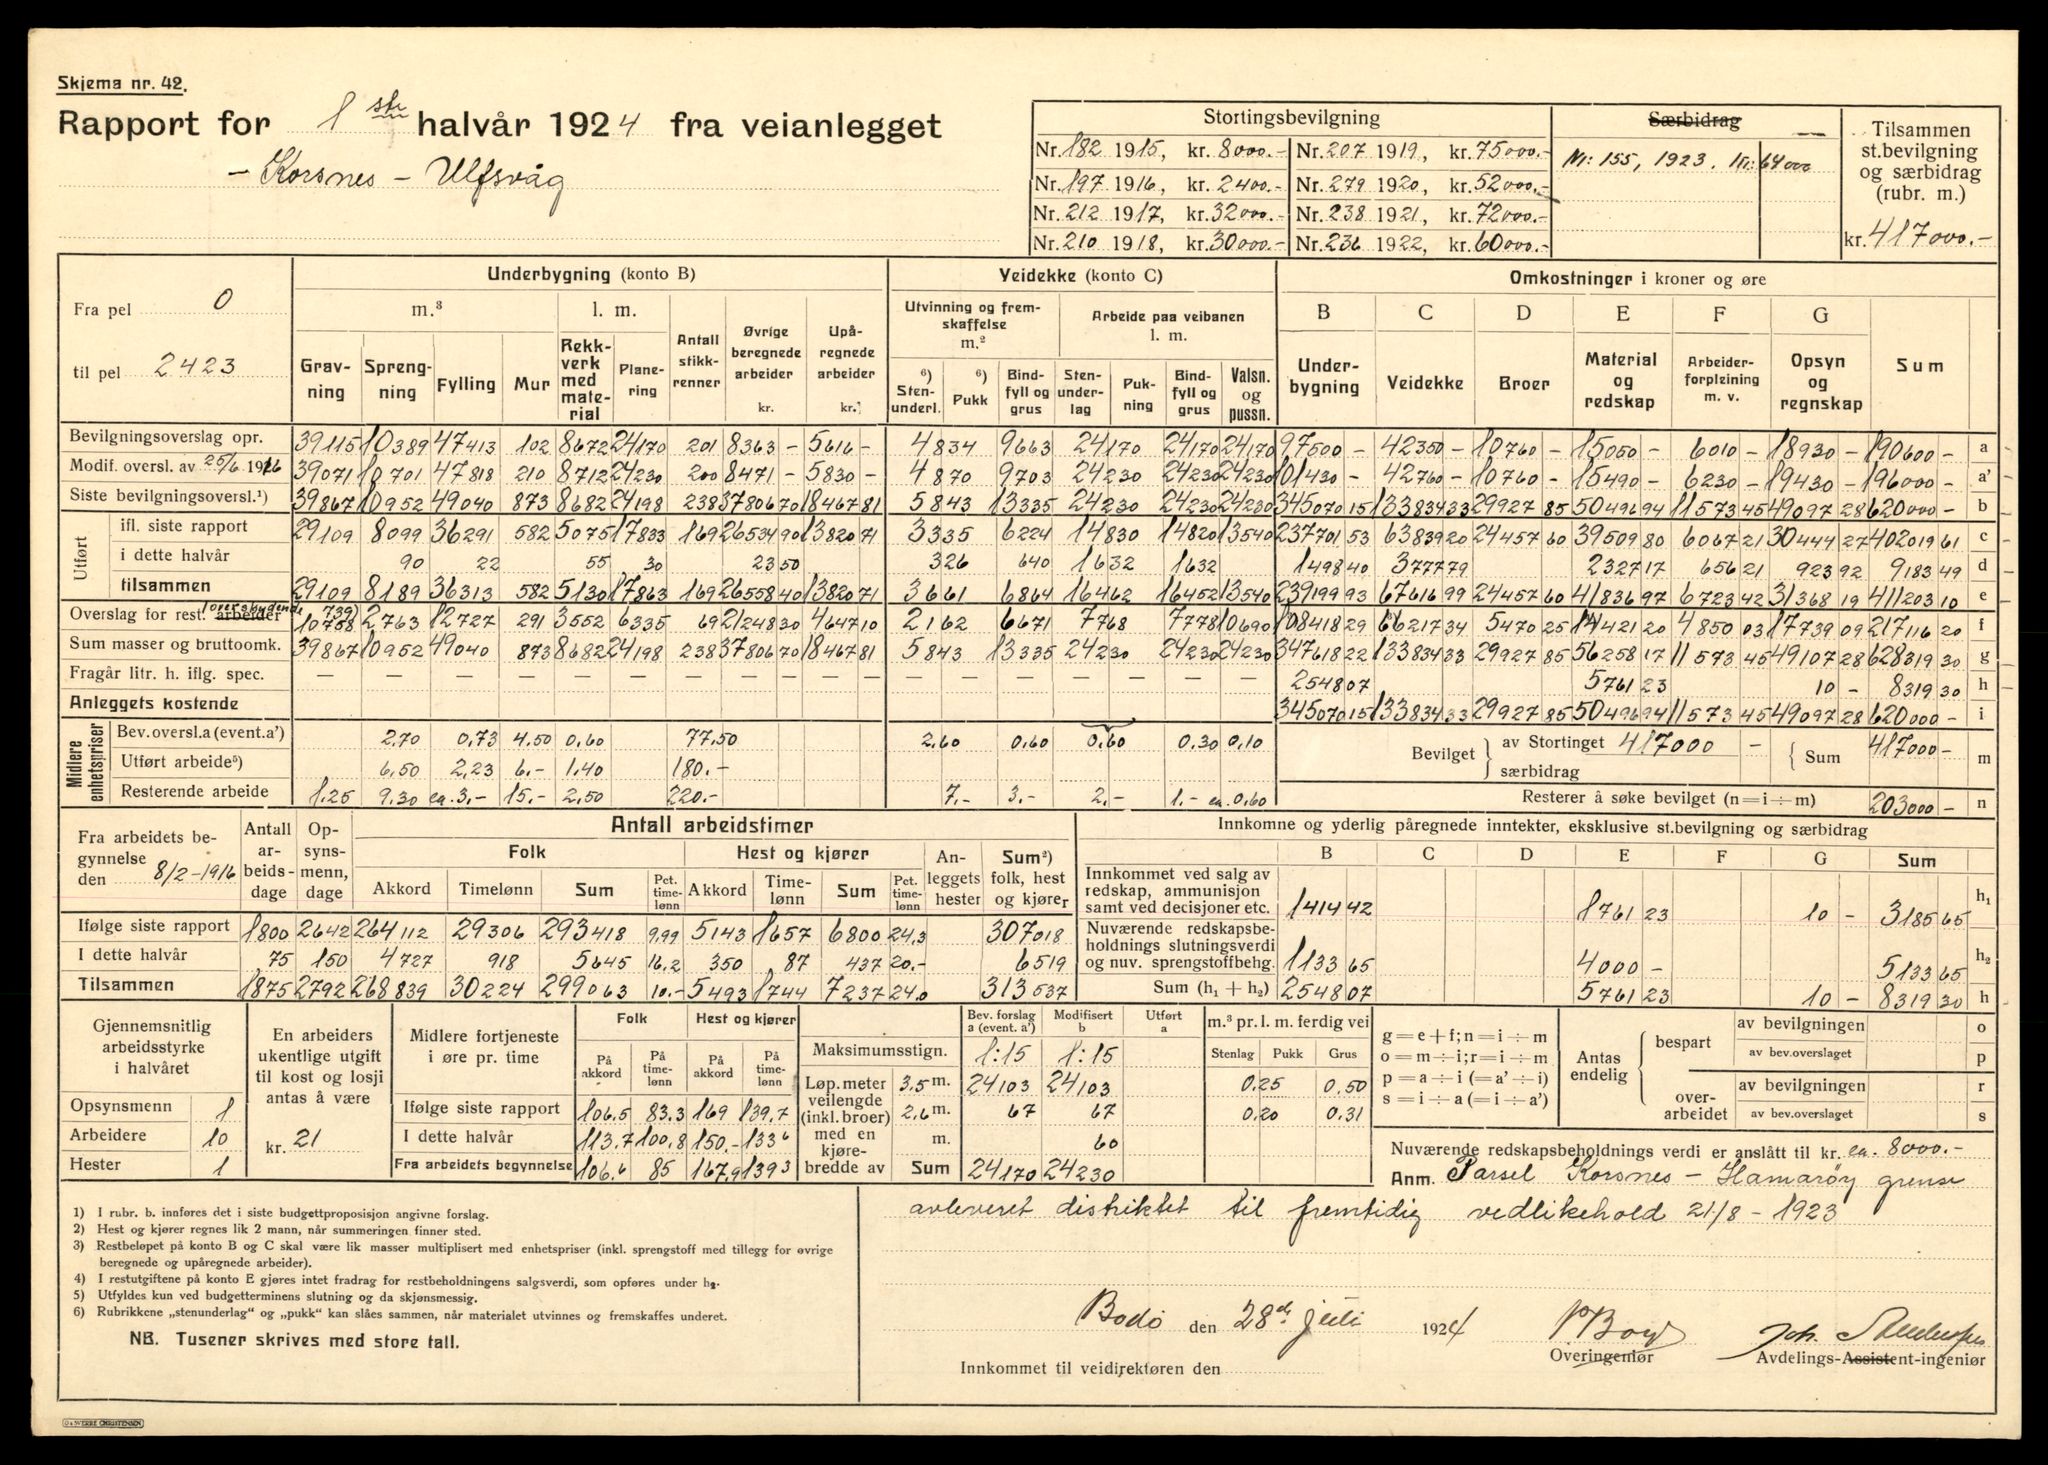 Skjema nr. 42.
Rapport for 1ste halvår 1924 fra veianlegget
- Korsnes - Ulfsvåg
Stortingsbevilgning
Særbidrag
Tilsammen st.bevilgning og særbidrag (rubr. m.)
kr. 417000.-
Nr. 182 1915, kr. 8000.- Nr. 207 1919, kr. 75000.- Nr: 155, 1923. Kr: 64000
Nr. 197 1916, kr. 2400.- Nr. 279 1920, kr. 52000.-
Nr. 212 1917, kr. 32000.- Nr. 238 1921, kr. 72000.-
Nr. 210 1918, kr. 30000.- Nr. 236 1922, kr. 60000.-
Fra pel 0
til pel 2423
Underbygning (konto B) Veidekke (konto C) Omkostninger i kroner og øre
m.³ l. m. Antall stikkrenner Øvrige beregnede arbeider kr. Upåregnede arbeider kr.
Utvinning og fremskaffelse m.² Arbeide paa veibanen l. m.
B C D E F G
Gravning Sprengning Fylling Mur Rekkverk med material Planering
6) Stenunderl. 6) Pukk Bindfyll og grus Stenunderlag Pukning Bindfyll og grus Valsn. og pussn.
Underbygning Veidekke Broer Material og redskap Arbeiderforpleining m. v. Opsyn og regnskap Sum
Bevilgningsoverslag opr. 39115 10389 47413 102 8672 24170 201 8363 - 5616 - 4834 9663 24170 24170 24170 97500 - 42350 - 10760 - 15050 - 6010 - 18930 - 190600 - a
Modif. oversl. av 25/6 1916 39071 10701 47818 210 8712 24230 200 8471 - 5830 - 4870 9703 24230 24230 24230 101430 - 42760 - 10760 - 15490 - 6230 - 19430 - 196000 - a'
Siste bevilgningsoversl.¹) 39867 10952 49040 873 8682 24198 238 37806 70 18467 81 5843 13335 24230 24230 24230 345070 15 133834 33 29927 85 50496 94 11573 45 49097 28 620000 - b
Utført
ifl. siste rapport 29109 8099 36291 582 5075 17833 169 26534 90 13820 71 3335 6224 14830 14820 13540 237701 53 63839 20 24457 60 39509 80 6067 21 30444 27 402019 61 c
i dette halvår 90 22 55 30 23 50 326 640 1632 1632 1498 40 3777 79 2327 17 656 21 923 92 9183 49 d
tilsammen 29109 8189 36313 582 5130 17863 169 26558 40 13820 71 3661 6864 16462 16452 13540 239199 93 67616 99 24457 60 41836 97 6723 42 31368 19 411203 10 e
Overslag for rest. arbeider 10758 2763 12727 291 3552 6335 69 21248 30 4647 10 2162 6671 7768 7778 10690 108418 29 66217 34 5470 25 14421 20 4850 03 17739 09 217116 20 f
Sum masser og bruttoomk. 39867 10952 49040 873 8682 24198 238 37806 70 18467 81 5843 13335 24230 24230 24230 347618 22 133834 33 29927 85 56258 17 11573 45 49107 28 628319 30 g
Fragår litr. h. iflg. spec. - - - - - - - - - - - - - - - 2548 07 5761 23 10 - 8319 30 h
Anleggets kostende 345070 15 133834 33 29927 85 50496 94 11573 45 49097 28 620000 - i
Midlere enhetspriser
Bev. oversl. a (event. a') 2.70 0.73 4.50 0.60 77.50 2.60 0.60 0.60 0.30 0.10
Utført arbeide⁵) 6.50 2.23 6.- 1.40 180.-
Resterende arbeide 1.25 9.30 ca. 3.- 15.- 2.50 220.- 7.- 3.- 2.- 1.- ca. 0.60
Bevilget av Stortinget 417000 - Sum 417000 - m
særbidrag
Resterer å søke bevilget (n=i÷m) 203000 - n
Fra arbeidets begynnelse den 8/2-1916
Antall arbeidsdage Opsynsmenn, dage
Antall arbeidstimer
Folk Hest og kjører Anleggets hester Sum²) folk, hest og kjører
Akkord Timelønn Sum Pct. timelønn Akkord Timelønn Sum Pct. timelønn
Ifølge siste rapport 1800 2642 264112 29306 293418 9.99 5143 1657 6800 24.3 307018
I dette halvår 75 150 4727 918 5645 16.2 350 87 437 20.- 6519
Tilsammen 1875 2792 268839 30224 299063 10.- 5493 1744 7237 24.0 313537
Innkomne og yderlig påregnede inntekter, eksklusive st.bevilgning og særbidrag
B C D E F G Sum
Innkommet ved salg av redskap, ammunisjon samt ved decisjoner etc. 1414 42 1761 23 10 - 3185 65 h₁
Nuværende redskapsbeholdnings slutningsverdi og nuv. sprengstoffbehg. 1133 65 4000 - 5133 65 h₂
Sum (h₁ + h₂) 2548 07 5761 23 10 - 8319 30 h
Gjennemsnitlig arbeidsstyrke i halvåret
Opsynsmenn 1
Arbeidere 10
Hester 1
En arbeiders ukentlige utgift til kost og losji antas å være
kr. 21
Midlere fortjeneste i øre pr. time
Folk Hest og kjører
På akkord På timelønn På akkord På timelønn
Ifølge siste rapport 106.5 83.3 169 139.7
I dette halvår 113.7 100.8 150.- 133⁶
Fra arbeidets begynnelse 106.6 85 167.9 139 3
Bev. forslag a (event. a') Modifisert b Utført a
Maksimumsstign. 1:15 1:15
Løp. meter veilengde (inkl. broer) med en kjørebredde av
3.5 m. 24103 24103
2.6 m. 67 67
m. 60
Sum 24170 24230
m.³ pr. l. m. ferdig vei
Stenlag Pukk Grus
0.25 0.50
0.20 0.31
g=e+f; n=i÷m
o=m÷i; r=i÷m
p=a÷i (=a'÷i)
s=i÷a (=i÷a')
Antas endelig
bespart av bevilgningen o
av bev.overslaget p
overarbeidet av bevilgningen r
av bev.overslaget s
Nuværende redskapsbeholdnings verdi er anslått til kr. ca. 8000.-
Anm. Parsel Korsnes - Hamarøy grense
avleveret distriktet til fremtidig vedlikehold 21/8 - 1923
1) I rubr. b. innføres det i siste budgettproposisjon angivne forslag.
2) Hest og kjører regnes lik 2 mann, når summeringen finner sted.
3) Restbeløpet på konto B og C skal være lik masser multiplisert med enhetspriser (inkl. sprengstoff med tillegg for øvrige
beregnede og upåregnede arbeider).
4) I restutgiftene på konto E gjøres intet fradrag for restbeholdningens salgsverdi, som opføres under h₂.
5) Utfyldes kun ved budgetterminens slutning og da skjønsmessig.
6) Rubrikkene „stenunderlag" og „pukk" kan slåes sammen, når materialet utvinnes og fremskaffes underet.
NB. Tusener skrives med store tall.
Bodø den 28de juli 1924
Overingeniør
Joh.
Avdelings-Assistent-ingeniør
Innkommet til veidirektøren den
O & SVERRE CHRISTENSEN